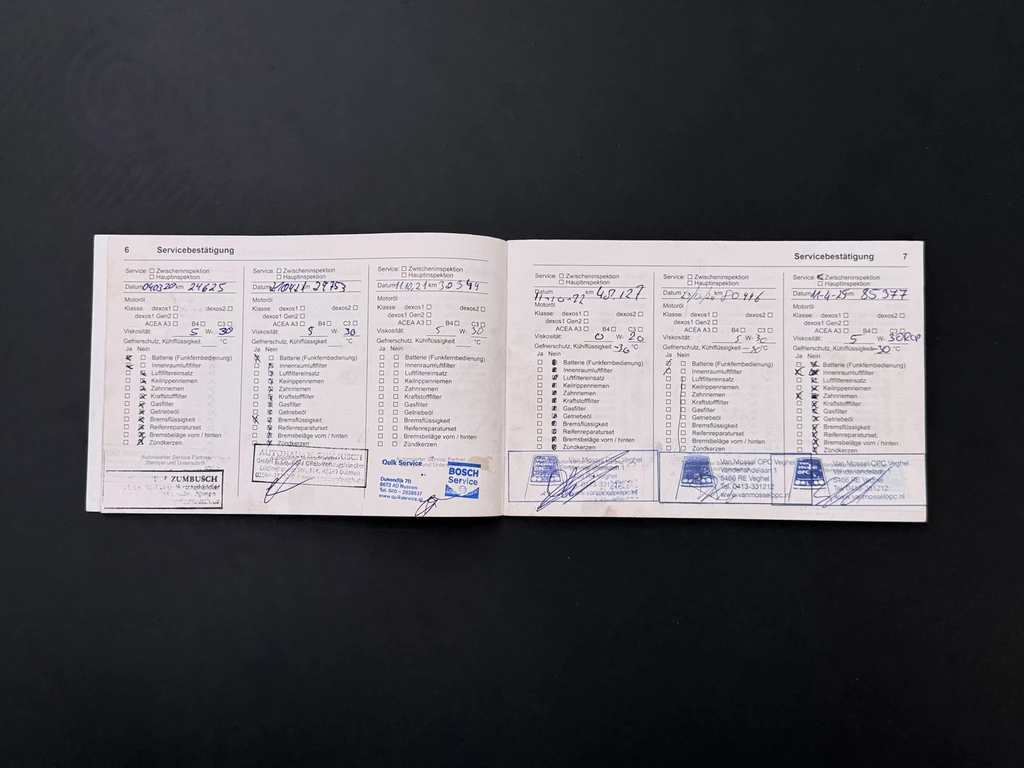 6 Servicebestätigung
Service: Zwischeninspektion
Hauptinspektion
Datum 040320 km 24625
Motoröl
Klasse: dexos1 dexos2
dexos1 Gen2
ACEA A3 B4 C3
Viskosität: 5 W- 30
Gefrierschutz, Kühlflüssigkeit °C
Ja Nein
Batterie (Funkfernbedienung)
Innenraumluftfilter
Luftfiltereinsatz
Keilrippenriemen
Zahnriemen
Kraftstofffilter
Gasfilter
Getriebeöl
Bremsflüssigkeit
Reifenreparaturset
Bremsbeläge vorn / hinten
Zündkerzen
Autorisierter Service Partner
Stempel und Unterschrift
ZUMBUSCH
Service: Zwischeninspektion
Hauptinspektion
Datum km 29753
Motoröl
Klasse: dexos1 dexos2
dexos1 Gen2
ACEA A3 B4 C3
Viskosität: 5 W- 30
Gefrierschutz, Kühlflüssigkeit °C
Ja Nein
Batterie (Funkfernbedienung)
Innenraumluftfilter
Luftfiltereinsatz
Keilrippenriemen
Zahnriemen
Kraftstofffilter
Gasfilter
Getriebeöl
Bremsflüssigkeit
Reifenreparaturset
Bremsbeläge vorn / hinten
Zündkerzen
ZUMBUSCH
Service: Zwischeninspektion
Hauptinspektion
Datum 11.10.21 km
Motoröl
Klasse: dexos1 dexos2
dexos1 Gen2
ACEA A3 B4 C3
Viskosität: 5 W- 30
Gefrierschutz, Kühlflüssigkeit °C
Ja Nein
Batterie (Funkfernbedienung)
Innenraumluftfilter
Luftfiltereinsatz
Keilrippenriemen
Zahnriemen
Kraftstofffilter
Gasfilter
Getriebeöl
Bremsflüssigkeit
Reifenreparaturset
Bremsbeläge vorn / hinten
Zündkerzen
Quik Service
BOSCH
Service
Dukendijk
5672 AD Nuenen
Tel. 040 - 2838837
Servicebestätigung 7
Service: Zwischeninspektion
Hauptinspektion
Datum 11-10-22 km 48.127
Motoröl
Klasse: dexos1 dexos2
dexos1 Gen2
ACEA A3 B4 C3
Viskosität: 0 W- 20
Gefrierschutz, Kühlflüssigkeit -36 °C
Ja Nein
Batterie (Funkfernbedienung)
Innenraumluftfilter
Luftfiltereinsatz
Keilrippenriemen
Zahnriemen
Kraftstofffilter
Gasfilter
Getriebeöl
Bremsflüssigkeit
Reifenreparaturset
Bremsbeläge vorn / hinten
Zündkerzen
Van Mossel OPC Veghel
Service: Zwischeninspektion
Hauptinspektion
Datum km
Motoröl
Klasse: dexos1 dexos2
dexos1 Gen2
ACEA A3 B4 C3
Viskosität: 5 W- 30
Gefrierschutz, Kühlflüssigkeit -30 °C
Ja Nein
Batterie (Funkfernbedienung)
Innenraumluftfilter
Luftfiltereinsatz
Keilrippenriemen
Zahnriemen
Kraftstofffilter
Gasfilter
Getriebeöl
Bremsflüssigkeit
Reifenreparaturset
Bremsbeläge vorn / hinten
Zündkerzen
Van Mossel OPC Veghel
Vanderlandelaan 1
5466 RE Veghel
Tel. 0413-331212
www.vanmosselopc.nl
Service: Zwischeninspektion
Hauptinspektion
Datum 11-4-25 km 85377
Motoröl
Klasse: dexos1 dexos2
dexos1 Gen2
ACEA A3 B4 C3
Viskosität: 5 W- 30
Gefrierschutz, Kühlflüssigkeit -30 °C
Ja Nein
Batterie (Funkfernbedienung)
Innenraumluftfilter
Luftfiltereinsatz
Keilrippenriemen
Zahnriemen
Kraftstofffilter
Gasfilter
Getriebeöl
Bremsflüssigkeit
Reifenreparaturset
Bremsbeläge vorn / hinten
Zündkerzen
Van Mossel OPC Veghel
Vanderlandelaan 1
5466 RE Veghel
Tel. 0413-331212
www.vanmosselopc.nl